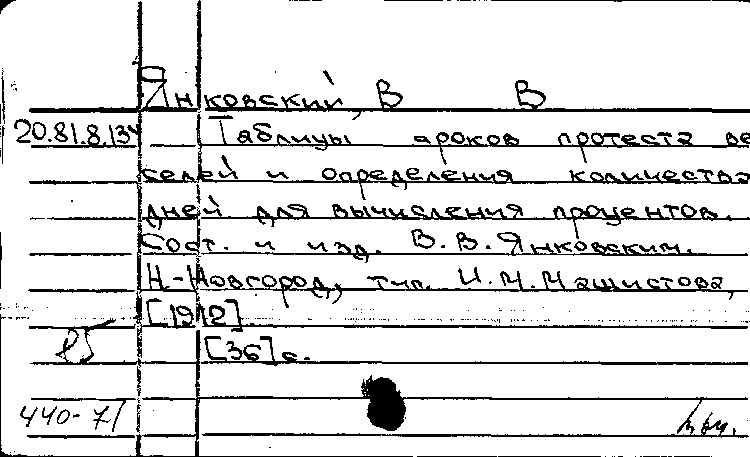 Янковский, В В
20.81.8.134 Таблицы сроков протеста ве
селей и определения количества
дней для вычисления процентов.
Сост. и изд. В.В. Янковским.
Н-Новгород, тип. И.М. Машистова,
[1912]
85 [36] с.
440-71